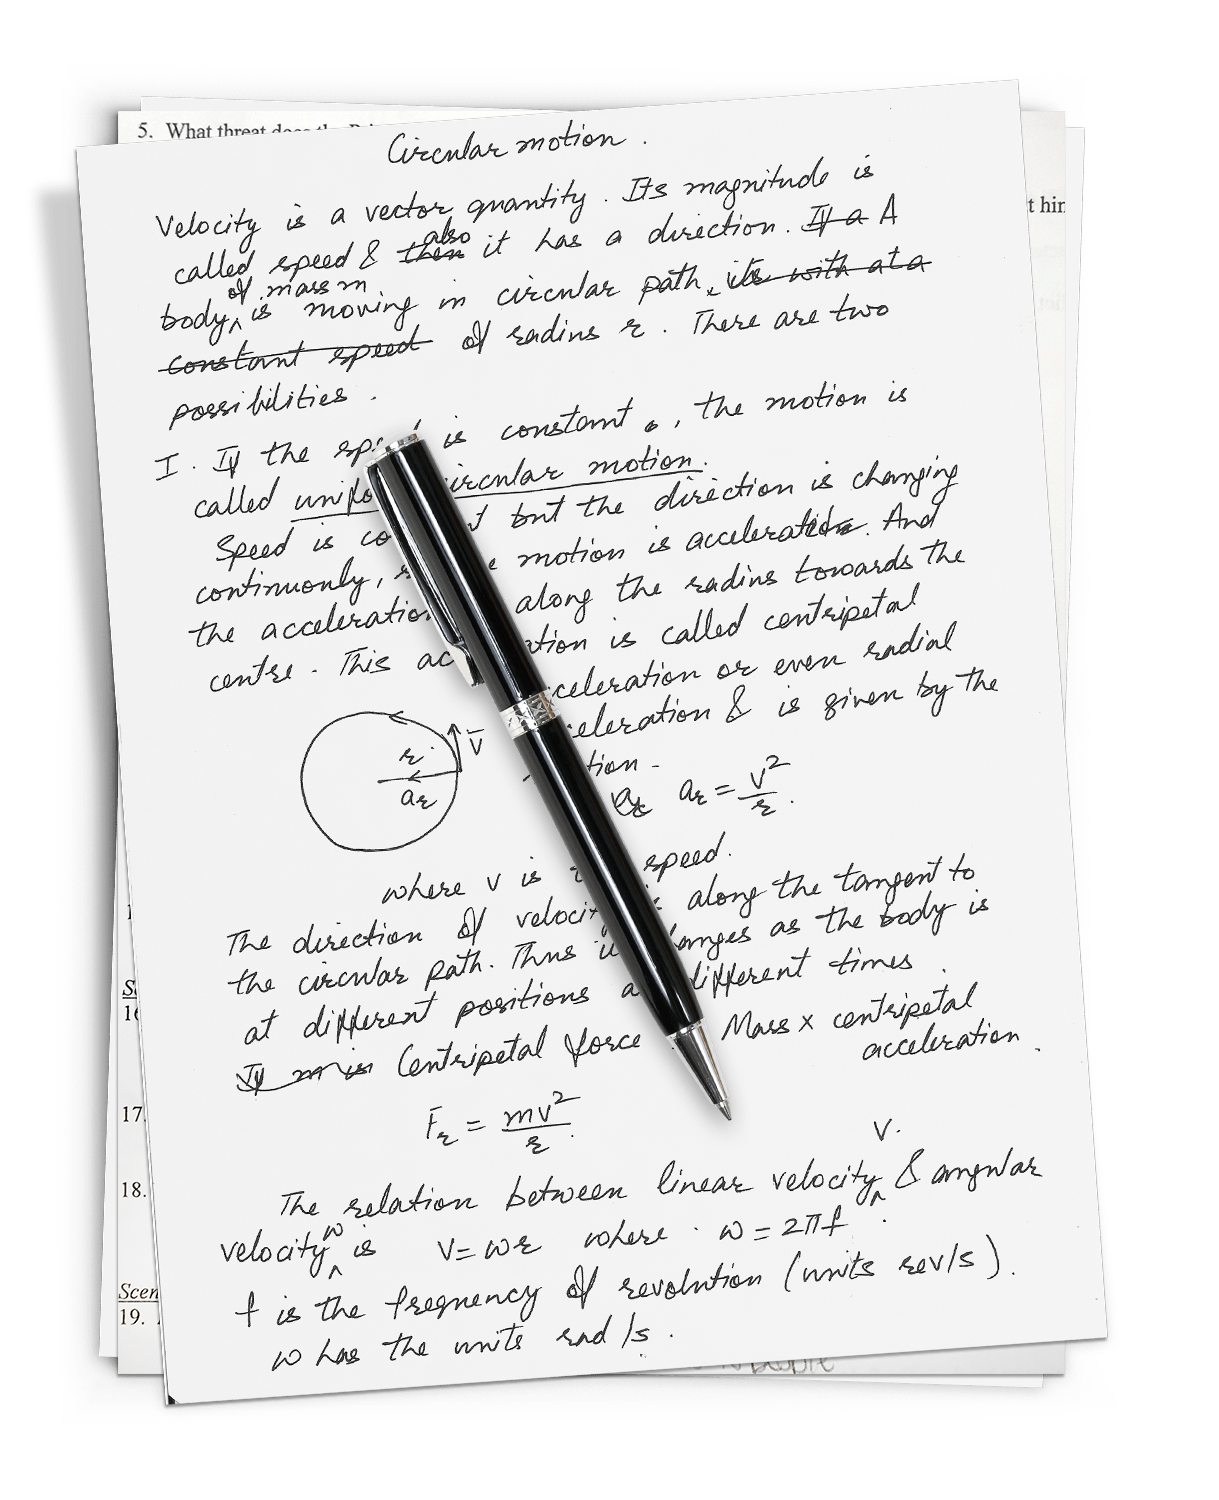 5. What threat does the
Circular motion.
Velocity is a vector quantity. Its magnitude is
also
called speed & then it has a direction. If a A
of mass m
body is moving in circular path, its with at a
constant speed of radius r. There are two
possibilities.
I. If the sp is constant, the motion is
called unifo ircular motion.
Speed is co t but the direction is changing
continuously, s e motion is acceleration. And
the acceleration along the radius towards the
centre. This ac ation is called centripetal
celeration or even radial
celeration & is given by the
tion -
r
v̄
ar
ar = v²/r.
where v is t speed.
The direction of velocit along the tangent to
the circular path. Thus i hanges as the body is
at different positions a different times.
If m is Centripetal force Mass x centripetal
acceleration.
Fr = mv²/r.
v.
The relation between linear velocity & angular
w
velocity is v = wr where w = 2πf.
f is the frequency of revolution (units rev/s).
w has the units rad/s.
t him
16
17.
18.
Scen
19.